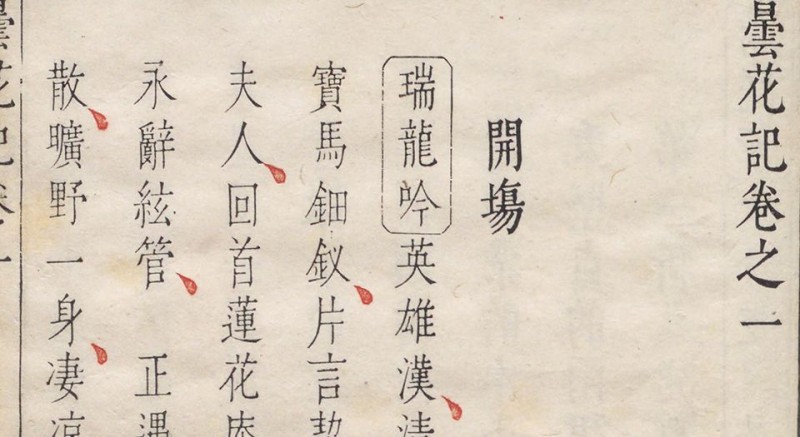 曇花記卷之一
開場
瑞龍吟英雄漢清
寶馬鈿釵片言契
夫人回首蓮花庵
永辭絃管 正遇
散曠野一身凄涼
曇花記卷一